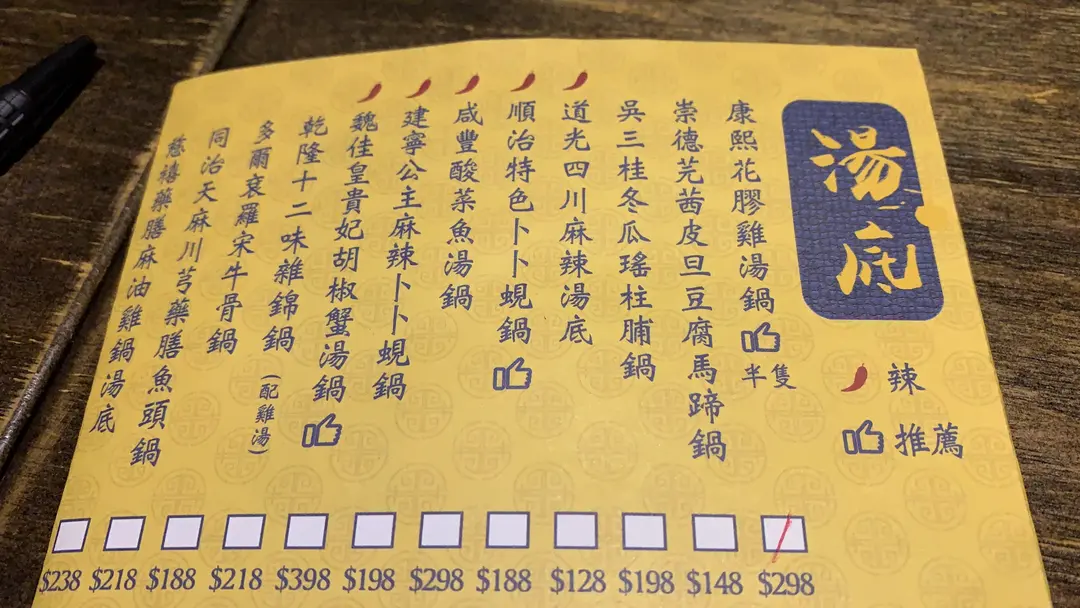 湯底
辣
推薦
康熙花膠雞湯鍋
半隻
崇德芫茜皮旦豆腐馬蹄鍋
吳三桂冬瓜瑤柱脯鍋
道光四川麻辣湯底
順治特色卜卜蜆鍋
咸豐酸菜魚湯鍋
建寧公主麻辣卜卜蜆鍋
魏佳皇貴妃胡椒蟹湯鍋
乾隆十二味雜錦鍋
(配雞湯)
多爾袞羅宋牛骨鍋
同治天麻川芎藥膳魚頭鍋
慈禧藥膳麻油雞鍋湯底
$238 $218 $188 $218 $398 $198 $298 $188 $128 $198 $148 $298